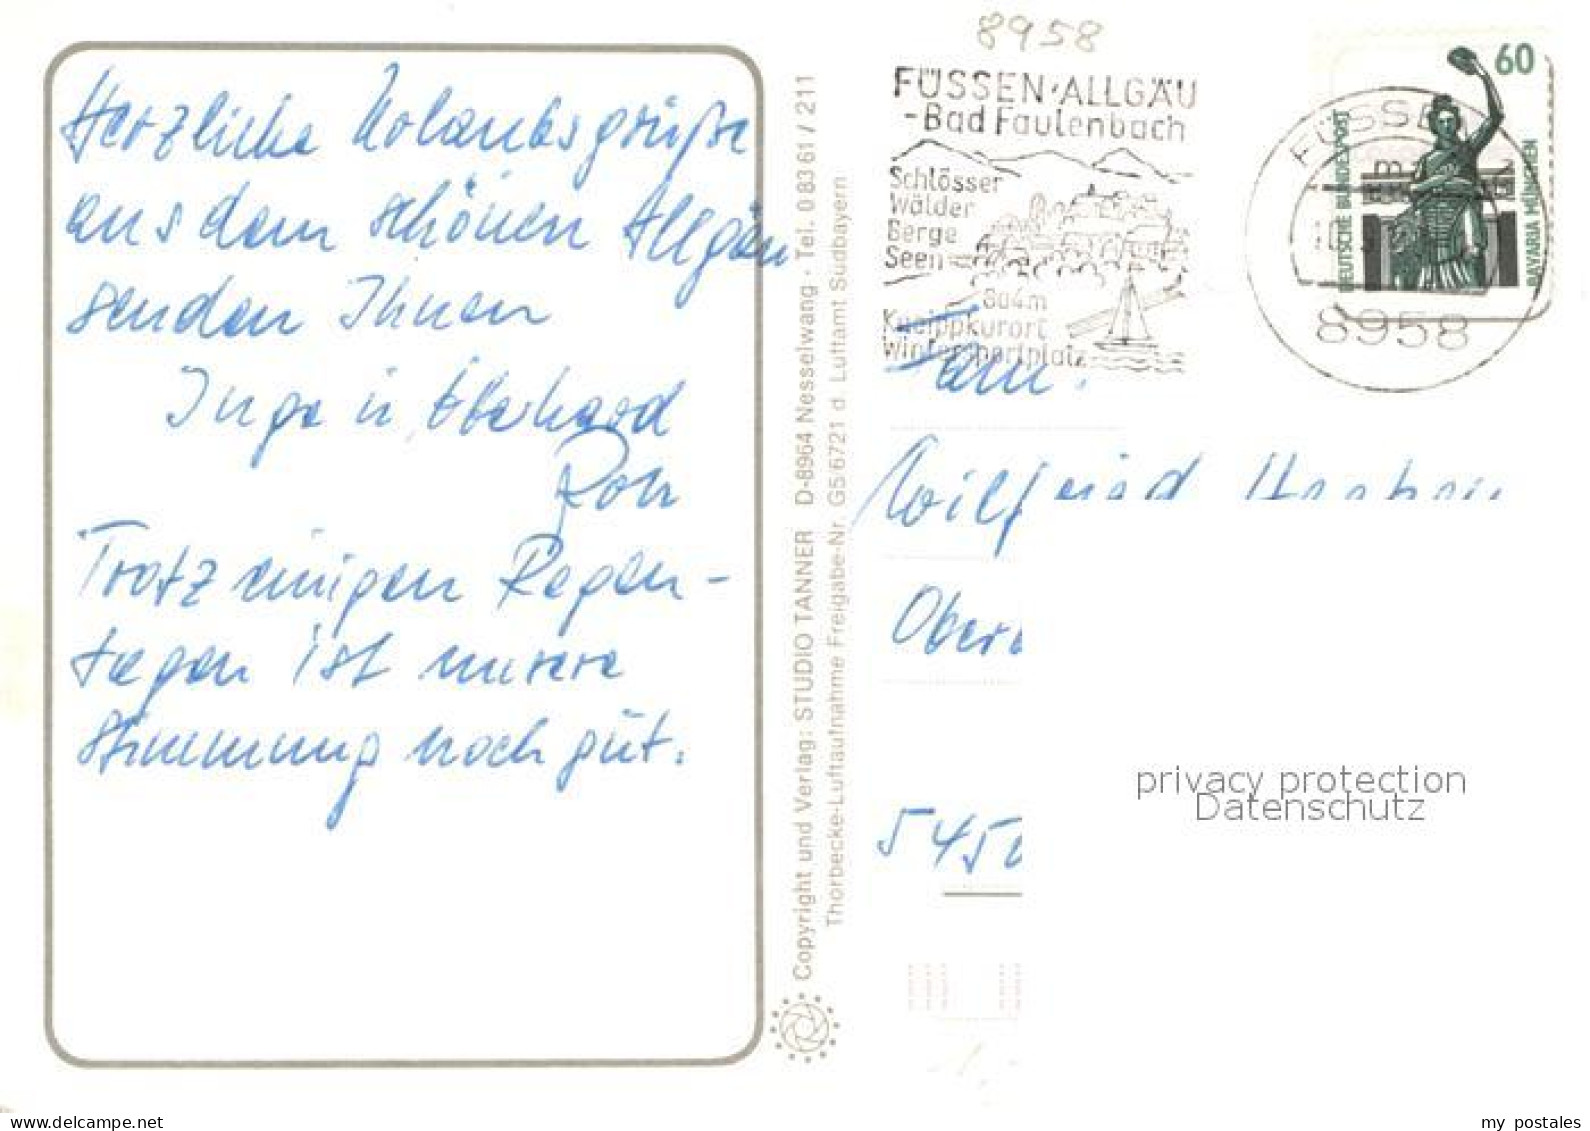 8958
Herzliche Urlaubsgrüße
aus dem schönen Allgäu
senden Ihnen
Inge u. Eberhard
Trotz einigen Regen-
tagen ist unsere
Stimmung noch gut.
Copyright und Verlag: STUDIO TANNER D-8964 Nesselwang · Tel. 0 83 61 / 211
Thorbecke-Luftaufnahme Freigabe-Nr. G5 6721 d. Luftamt Südbayern
FÜSSEN·ALLGÄU
-Bad Faulenbach
Schlösser
Wälder
Berge
Seen
804m
Kneippkurort
Wintersportplatz
60
DEUTSCHE BUNDESPOST
BAVARIA MÜNCHEN
FÜSSEN
8958
Fam.
Wilfried
Ober
545
privacy protection
Datenschutz
my postales